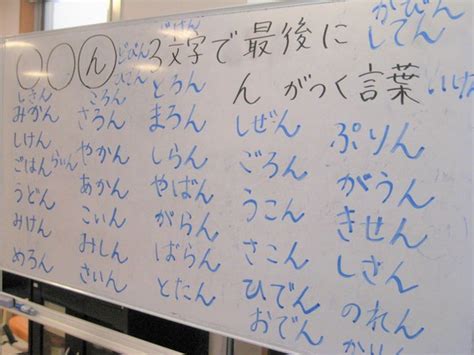 ん
3文字で最後に
んがつく言葉
じけん
かびん
してん
じさん
みかん
しけん
ごはん
らいん
うどん
みけん
めろん
ころん
さうん
やかん
あかん
こいん
みしん
さいん
とろん
まろん
しらん
やばん
がらん
ばらん
とたん
しぜん
ごろん
うこん
さこん
ひでん
おでん
ぷりん
がうん
きせん
しざん
のれん